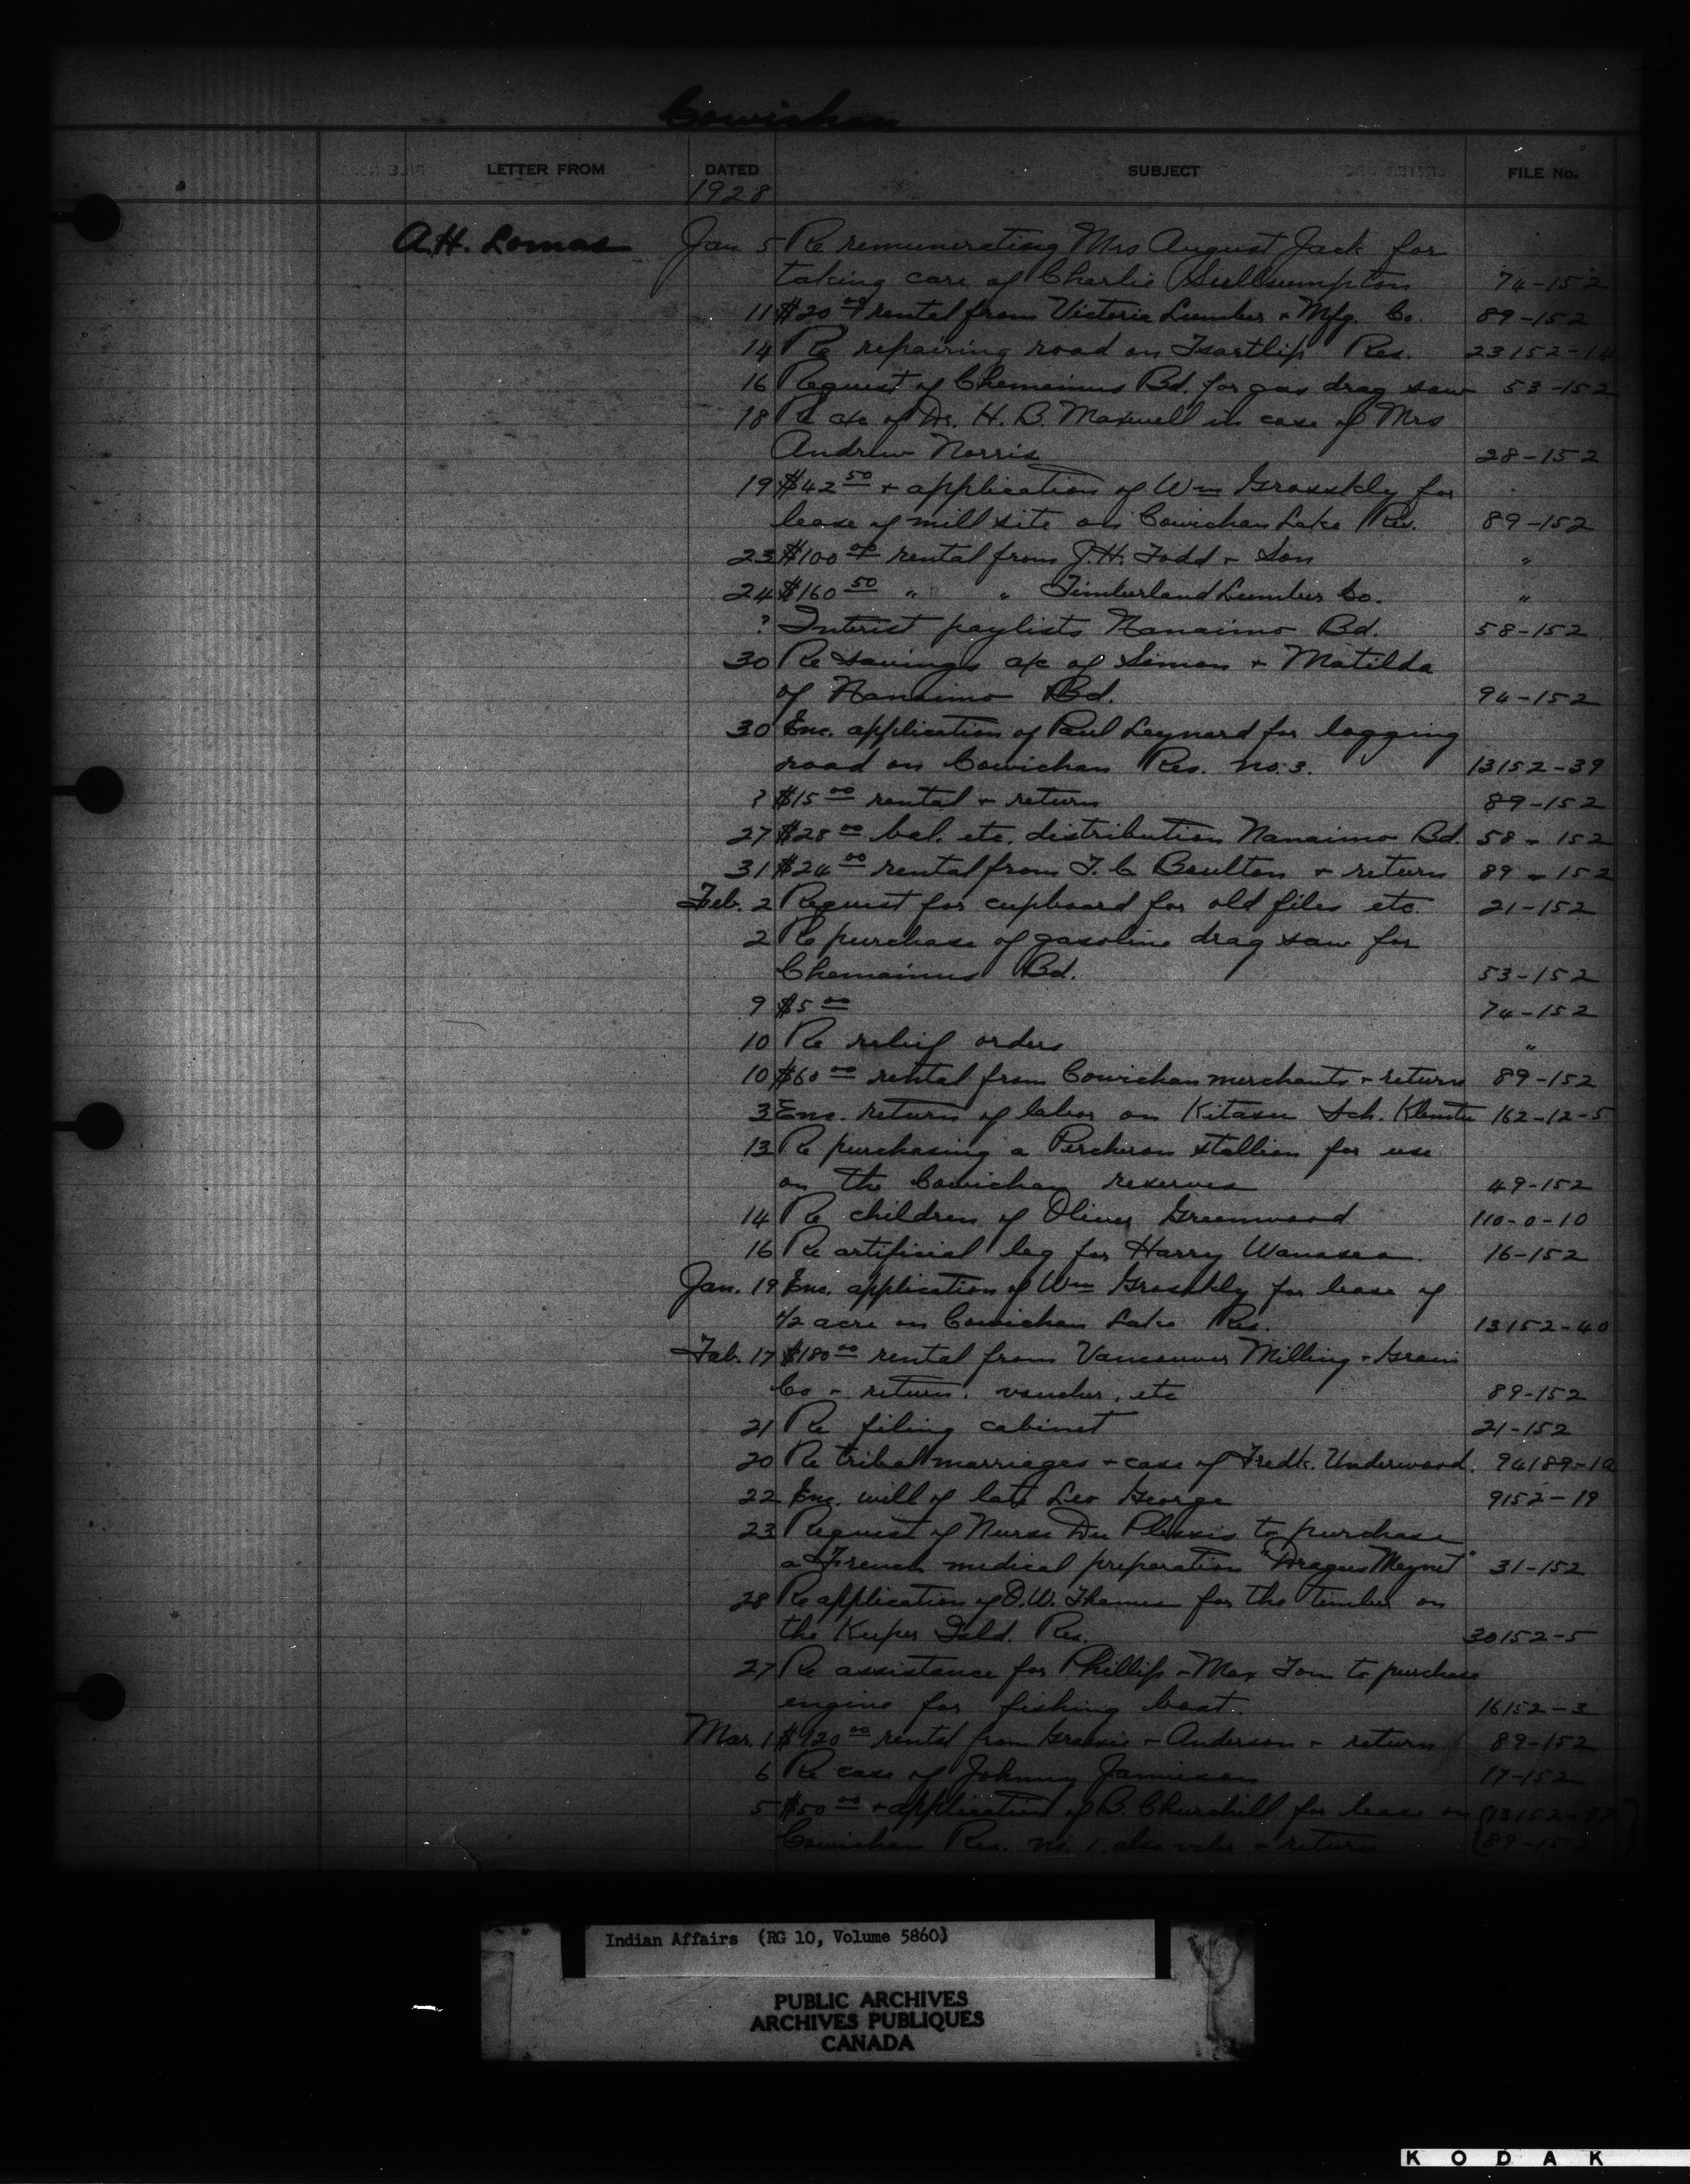 Cowichan
LETTER FROM DATED SUBJECT FILE No.
1928
A.H. Lomas Jan. 5 Re remunerating Mrs August Jack for
taking care of Charlie 74-152
11 $20.00 rental from Victoria Lumber + Mfg. Co. 89-152
14 Re repairing road on Tsartlip Res. 23152-14
16 Request of Chemainus Bd. for gas drag saw 53-152
18 Re a/c of Dr. H. B. Maxwell in case of Mrs
Andrew Norris 28-152
19 $42.50 + application of Wm Grosskly for
lease of mill site on Cowichan Lake Res. 89-152
23 $100.00 rental from J.H. Todd + Son "
24 $160.50 " " Timberland Lumber Co. "
? Interist paylists Nanaimo Bd. 58-152
30 Re savings a/c of Simon + Matilda
of Nanaimo Bd. 94-152
30 Enc. application of Paul Leynard for logging
road on Cowichan Res. no. 3. 13152-39
? $15.00 rental + return 89-152
27 $28.00 bal. etc. distribution Nanaimo Bd. 58-152
31 $24.00 rental from T. C Boulton + return 89-152
Feb. 2 Request for cupboard for old files etc. 21-152
2 Re purchase of gasoline drag saw for
Chemainus Bd. 53-152
9 $5.00 74-152
10 Re relief orders "
10 $60.00 rental from Cowichan merchants + return 89-152
3 Enc. return of labor on Kitasu Sch. Klemtu 162-12-5
13 Re purchasing a Percheron stallion for use
on the Cowichan reserves 49-152
14 Re children of Oliver Greenwood 110-0-10
16 Re artificial leg for Harry Wanasea 16-152
Jan. 19 Enc. application of Wm Grosskly for lease of
1/2 acre on Cowichan Lake Res. 13152-40
Feb. 17 $180.00 rental from Vancouver Milling + Grain
Co + return, voucher, etc 89-152
21 Re filing cabinet 21-152
20 Re tribal marriages + case of Fredk. Underwood. 94189-10
22 Enc. will of late Leo George 9152-19
23 Request of Nurse Du Plessis to purchase
a French medical preparation "Dragus Meynet" 31-152
28 Re application of O.W. Thames for the timber on
the Kuper Isld. Res. 30152-5
27 Re assistance for Phillip + Max Tom to purchase
engine for fishing boat. 16152-3
Mar. 1 $920.00 rental from + Anderson + return 89-152
6 Re case of Johnny Jamieson 17-152
5 $50.00 + application of B. Churchill for lease on 13152-37
Cowichan Res. no. 1 also vchr + return 89-152
Indian Affairs (RG 10, Volume 5860)
PUBLIC ARCHIVES
ARCHIVES PUBLIQUES
CANADA
KODAK